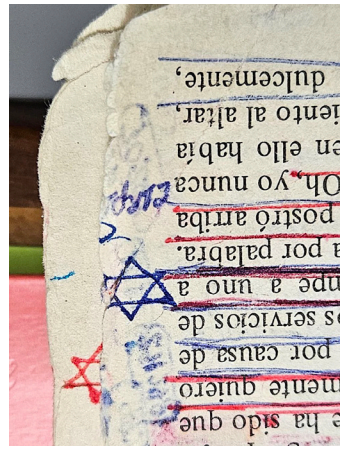 e ha sido que
mente quiero
por causa de
s servicios de
mpe a uno a
a por palabra.
postró arriba
Oh, yo nunca
en ello había
iento al altar,
dulcemente,